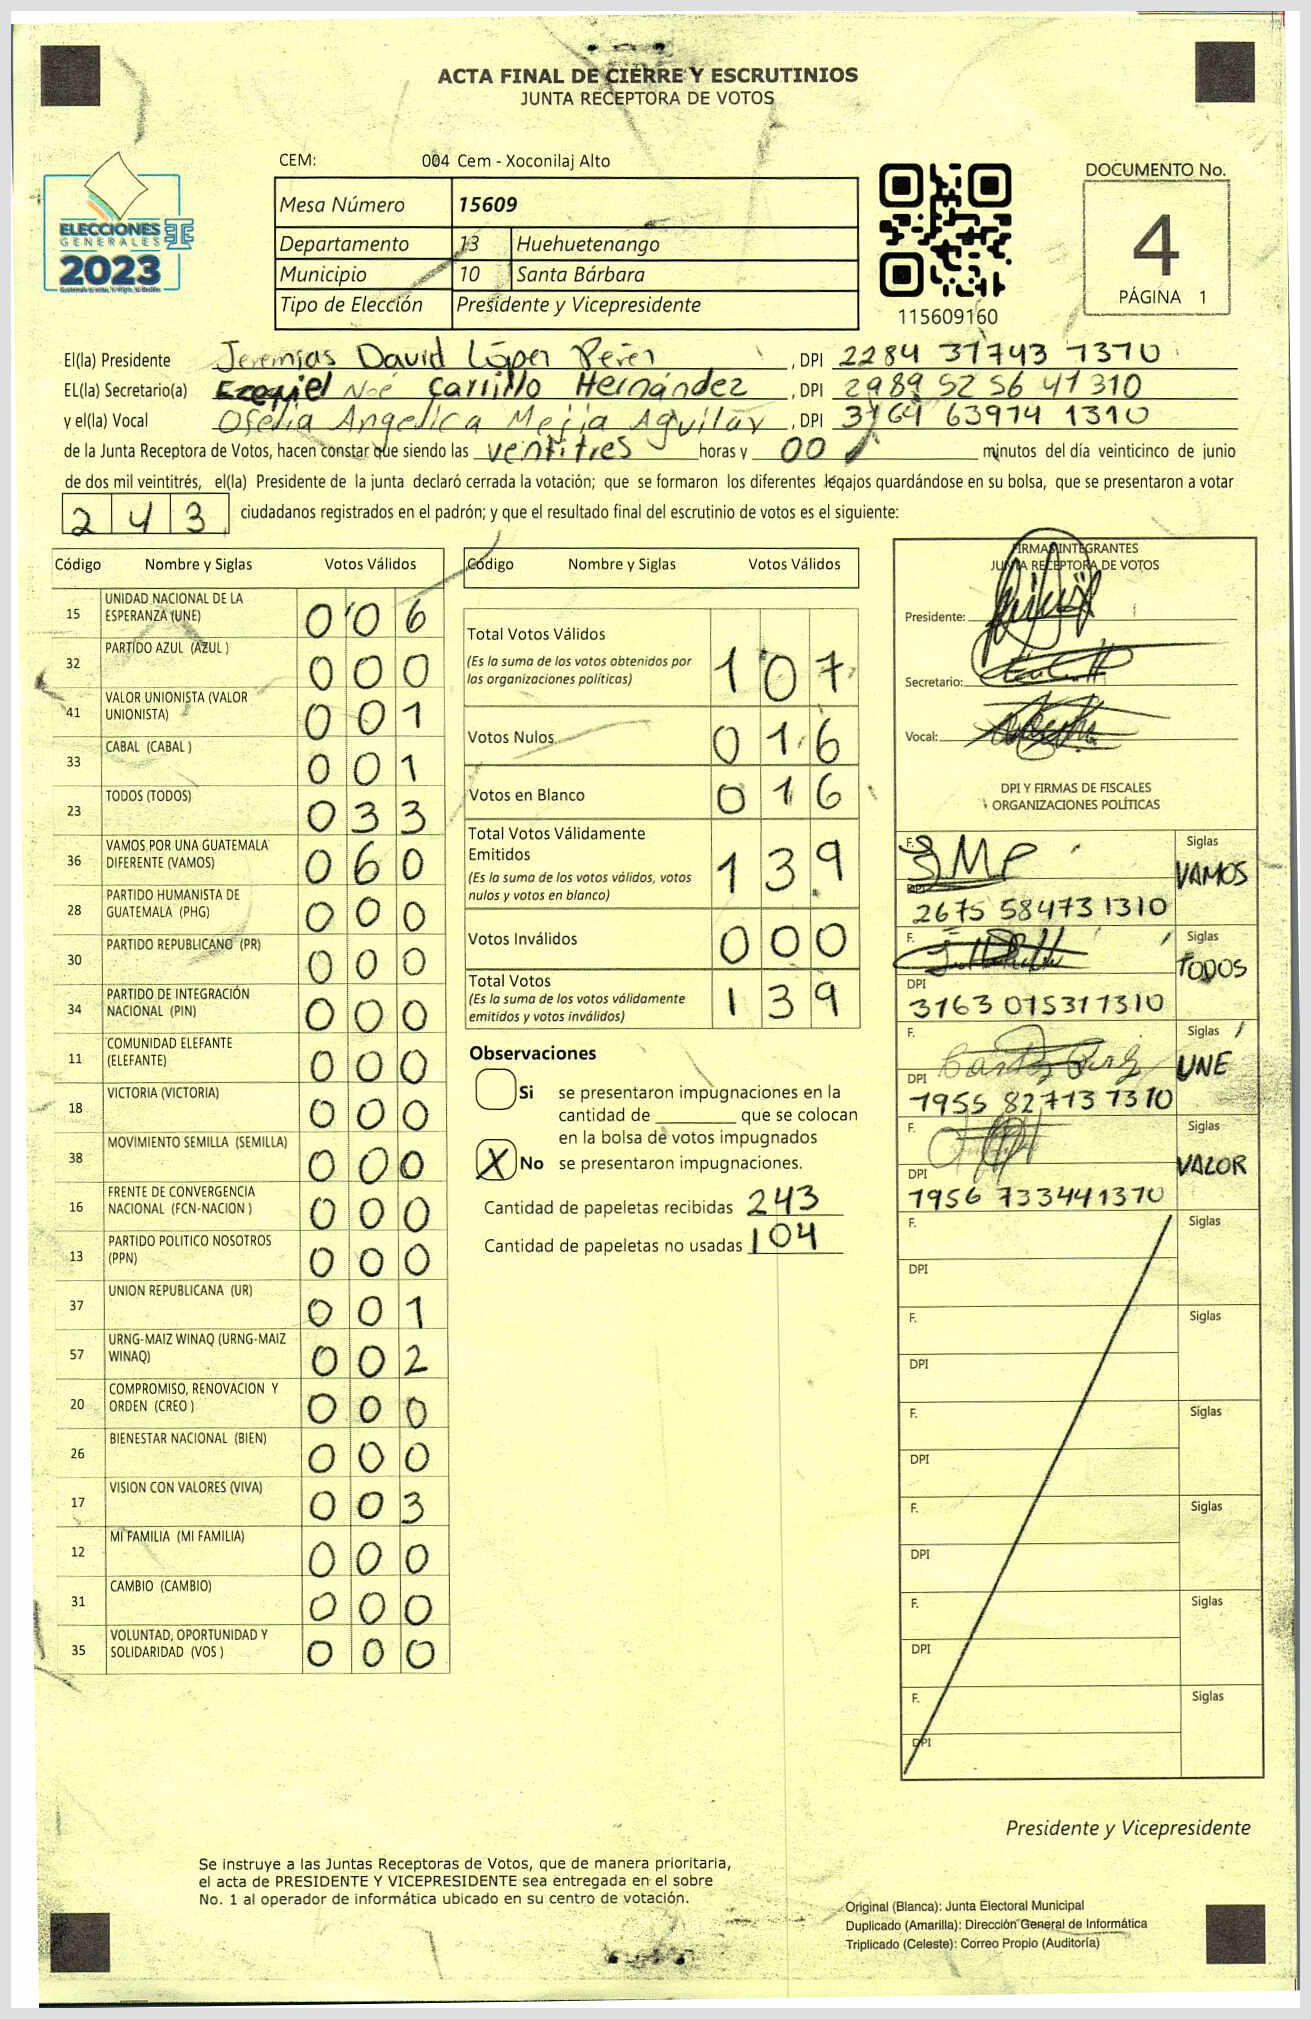 ACTA FINAL DE CIERRE Y ESCRUTINIOS
JUNTA RECEPTORA DE VOTOS
CEM: 004 Cem - Xoconilaj Alto
ELECCIONES
GENERALES
2023
Mesa Número 15609
Departamento 13 Huehuetenango
Municipio 10 Santa Bárbara
Tipo de Elección Presidente y Vicepresidente
115609160
DOCUMENTO No.
4
PÁGINA 1
El(la) Presidente Jeremías David López Pérez, DPI 2284 31743 1310
EL(la) Secretario(a) Ezequiel Noé Carrillo Hernández, DPI 2989 52 56 41 310
y el(la) Vocal Ofelia Angelica Mejia Aguilar, DPI 3164 63974 1310
de la Junta Receptora de Votos, hacen constar que siendo las ventitres horas y 00 minutos del día veinticinco de junio
de dos mil veintitrés, el(la) Presidente de la junta declaró cerrada la votación; que se formaron los diferentes legajos quardándose en su bolsa, que se presentaron a votar
243 ciudadanos registrados en el padrón; y que el resultado final del escrutinio de votos es el siguiente:
Código Nombre y Siglas Votos Válidos
15 UNIDAD NACIONAL DE LA ESPERANZA (UNE) 006
32 PARTIDO AZUL (AZUL ) 000
41 VALOR UNIONISTA (VALOR UNIONISTA) 001
33 CABAL (CABAL ) 001
23 TODOS (TODOS) 033
36 VAMOS POR UNA GUATEMALA DIFERENTE (VAMOS) 060
28 PARTIDO HUMANISTA DE GUATEMALA (PHG) 000
30 PARTIDO REPUBLICANO (PR) 000
34 PARTIDO DE INTEGRACIÓN NACIONAL (PIN) 000
11 COMUNIDAD ELEFANTE (ELEFANTE) 000
18 VICTORIA (VICTORIA) 000
38 MOVIMIENTO SEMILLA (SEMILLA) 000
16 FRENTE DE CONVERGENCIA NACIONAL (FCN-NACION ) 000
13 PARTIDO POLITICO NOSOTROS (PPN) 000
37 UNION REPUBLICANA (UR) 001
57 URNG-MAIZ WINAQ (URNG-MAIZ WINAQ) 002
20 COMPROMISO, RENOVACION Y ORDEN (CREO ) 000
26 BIENESTAR NACIONAL (BIEN) 000
17 VISION CON VALORES (VIVA) 003
12 MI FAMILIA (MI FAMILIA) 000
31 CAMBIO (CAMBIO) 000
35 VOLUNTAD, OPORTUNIDAD Y SOLIDARIDAD (VOS ) 000
Código Nombre y Siglas Votos Válidos
Total Votos Válidos 107
(Es la suma de los votos obtenidos por
las organizaciones políticas)
Votos Nulos 016
Votos en Blanco 016
Total Votos Válidamente
Emitidos 139
(Es la suma de los votos válidos, votos
nulos y votos en blanco)
Votos Inválidos 000
Total Votos 139
(Es la suma de los votos válidamente
emitidos y votos inválidos)
Observaciones
Si se presentaron impugnaciones en la
cantidad de ________ que se colocan
en la bolsa de votos impugnados
X No se presentaron impugnaciones.
Cantidad de papeletas recibidas 243
Cantidad de papeletas no usadas 104
FIRMAS INTEGRANTES
JUNTA RECEPTORA DE VOTOS
Presidente:
Secretario:
Vocal:
DPI Y FIRMAS DE FISCALES
ORGANIZACIONES POLÍTICAS
F. Siglas
VAMOS
DPI 2675 58473 1310
F. Siglas
TODOS
DPI 3163 015311310
F. Siglas
UNE
DPI 1955 827131310
F. Siglas
VALOR
DPI 1956 733441310
F. Siglas
DPI
F. Siglas
DPI
F. Siglas
DPI
F. Siglas
DPI
F. Siglas
DPI
F. Siglas
DPI
Presidente y Vicepresidente
Se instruye a las Juntas Receptoras de Votos, que de manera prioritaria,
el acta de PRESIDENTE Y VICEPRESIDENTE sea entregada en el sobre
No. 1 al operador de informática ubicado en su centro de votación.
Original (Blanca): Junta Electoral Municipal
Duplicado (Amarilla): Dirección General de Informática
Triplicado (Celeste): Correo Propio (Auditoría)